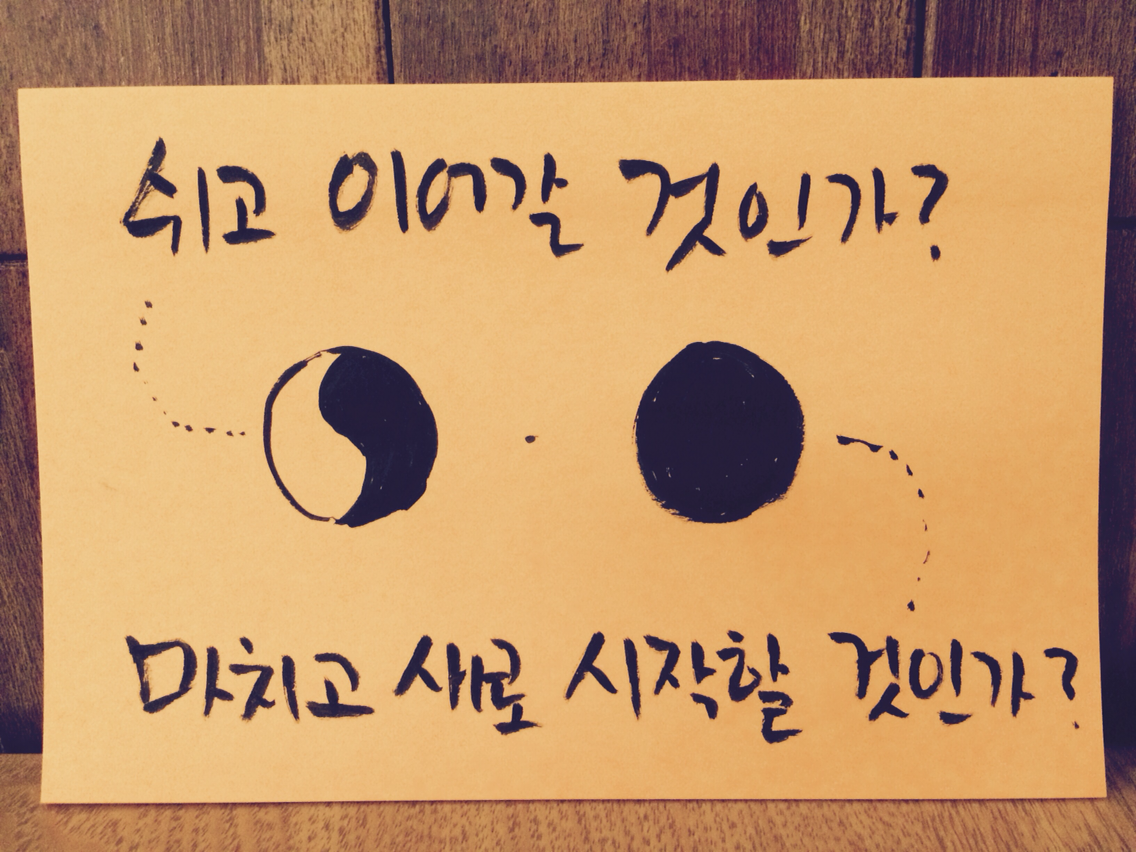 쉬고 이어갈 것인가?
마치고 새로 시작할 것인가?